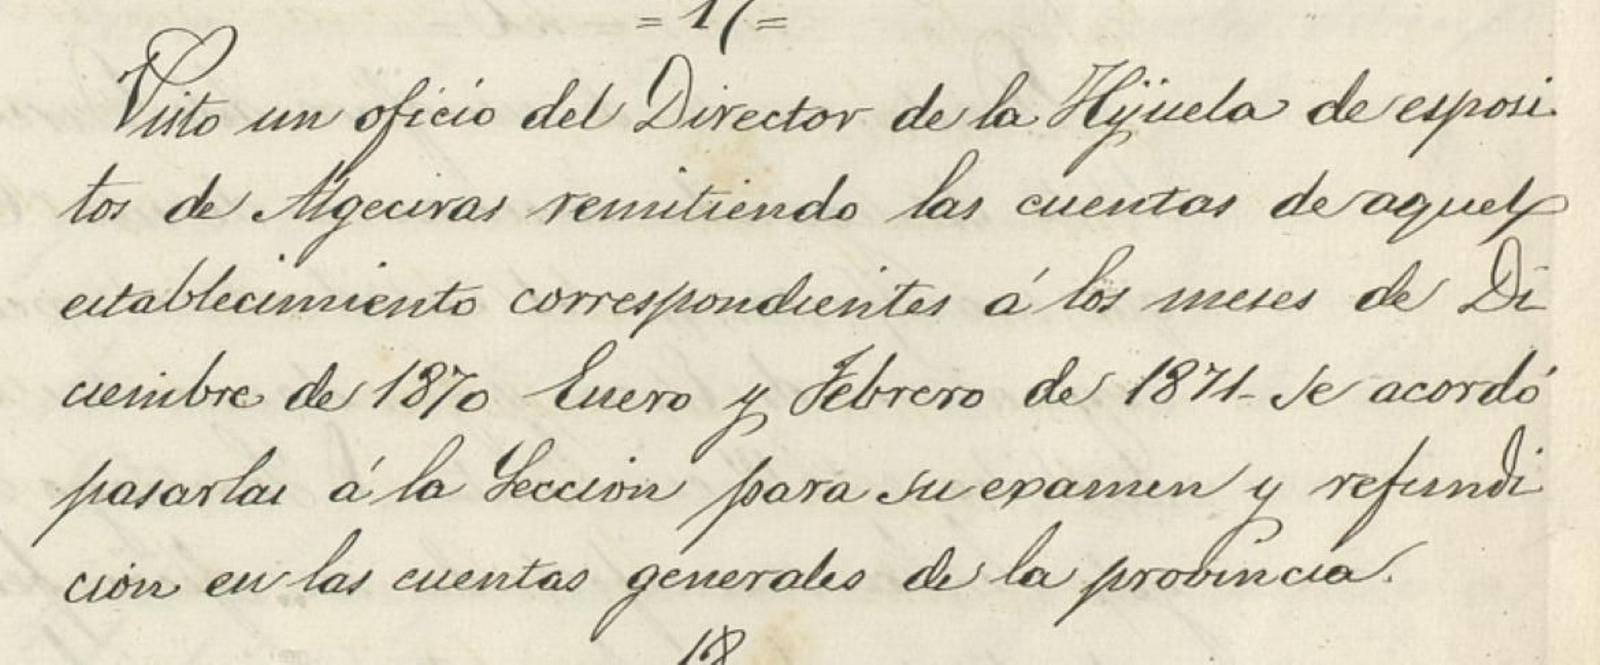 = 17 =
Visto un oficio del Director de la Hijuela de esposi
tos de Algeciras remitiendo las cuentas de aquel
establecimiento correspondientes á los meses de Di
ciembre de 1870 Enero y Febrero de 1871- Se acordó
pasarlas á la Seccion para su examen y refundi
cion en las cuentas generales de la provincia.
18